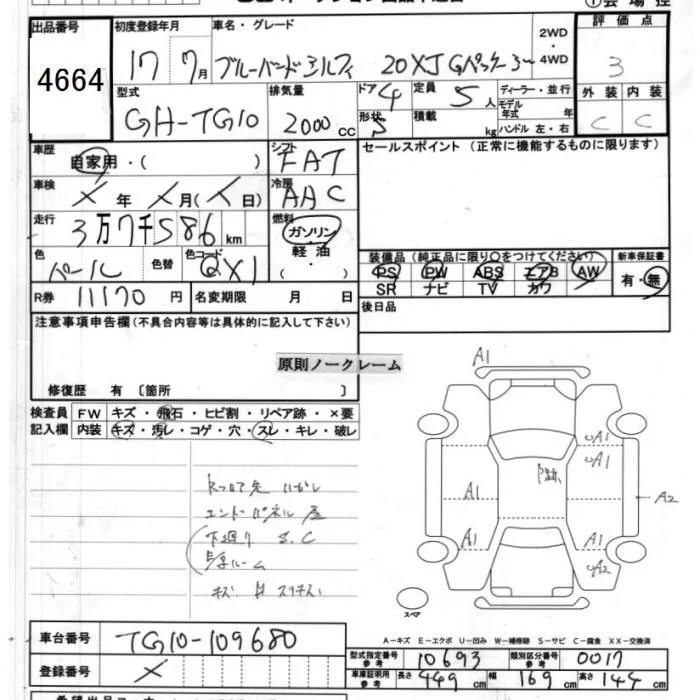 ① 会 場 控
出品番号
4664
初度登録年月
17 7月
車名・グレード
ブルーバードシルフィ 20XJ Gパッケージ
2WD
・
4WD
評 価 点
3
型式
GH-TG10
排気量
2000 cc
ドア 4
形状 5
定員 5 人
積載 kg
ディーラー・並行
モデル年式 年
ハンドル 左・右
外 装 内 装
C C
車歴
自家用・( )
シフト
FAT
セールスポイント (正常に機能するものに限ります)
車検
年 月( 日)
冷房
AAC
走行
3万7千586 km
燃料
ガソリン
軽 油
・( )
色
パール
色替
色コード
QX1
装備品 (純正品に限り○をつけてください)
PS PW ABS エアB AW
SR ナビ TV カワ
新車保証書
有・無
R券 11170 円
名変期限 月 日
後日品
注意事項申告欄 (不具合内容等は具体的に記入して下さい)
原則ノークレーム
修復歴 有 〔箇所 〕
検査員
記入欄
FW キズ・飛石・ヒビ割・リペア跡・×要
内装 キズ・汚レ・コゲ・穴・スレ・キレ・破レ
エンドパネル
下廻り S.C
A1
A1
A1
A1
A2
A1
A1
A1
A2
スペア
車台番号
TG10-109680
登録番号
A-キズ E-エクボ U-凹み W-補修跡 S-サビ C-腐食 XX-交換済
型式指定番号
参考
10693
類別区分番号
参考
0017
車庫証明用
参考
長さ 449 cm 幅 169 cm 高さ 144 cm